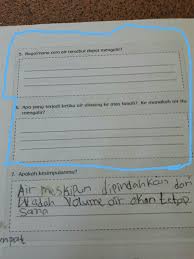 5. Bagaimana cara air tersebut dapat mengalir?
6. Apa yang terjadi ketika air dituang ke atas tanah? Ke manakah air itu
mengalir?
7. Apakah kesimpulanmu?
Air meskipun dipindahkan dari
Wadah Volume air akan tetap
Sama
empat